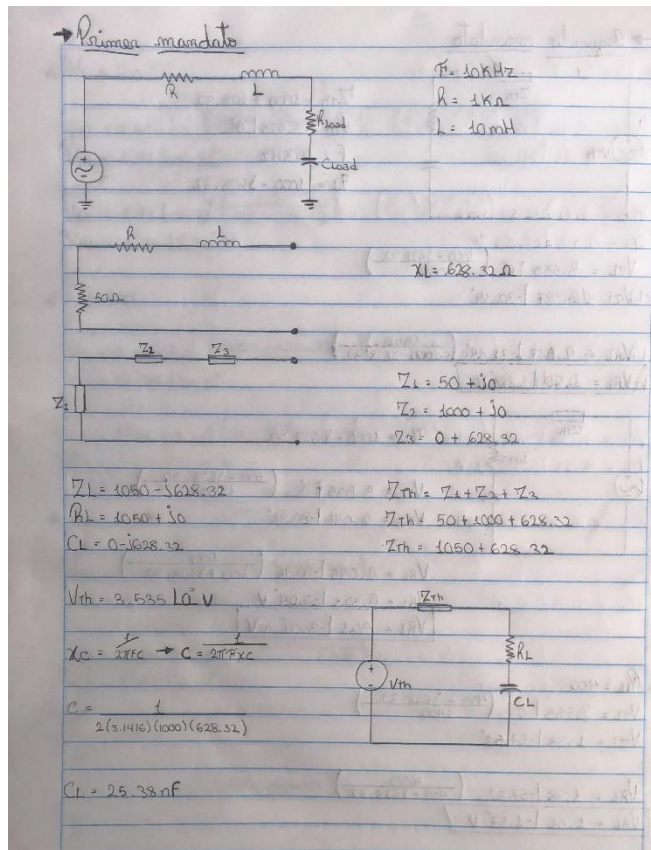 → Primer mandato
R
L
RLoad
CLoad
F = 10KHz
R = 1KΩ
L = 10mH
R
L
50Ω
XL = 628.32Ω
Z2
Z3
Z1
Z1 = 50 + j0
Z2 = 1000 + j0
Z3 = 0 + 628.32
ZL = 1050 - j628.32
RL = 1050 + j0
CL = 0 - j628.32
ZTh = Z1 + Z2 + Z3
ZTh = 50 + 1000 + 628.32
ZTh = 1050 + 628.32
VTh = 3.535 ∠0° V
XC = 1/2πFC → C = 1/2πFXC
C = 1/2(3.1416)(1000)(628.32)
CL = 25.38 nF
ZTh
VTh
RL
CL